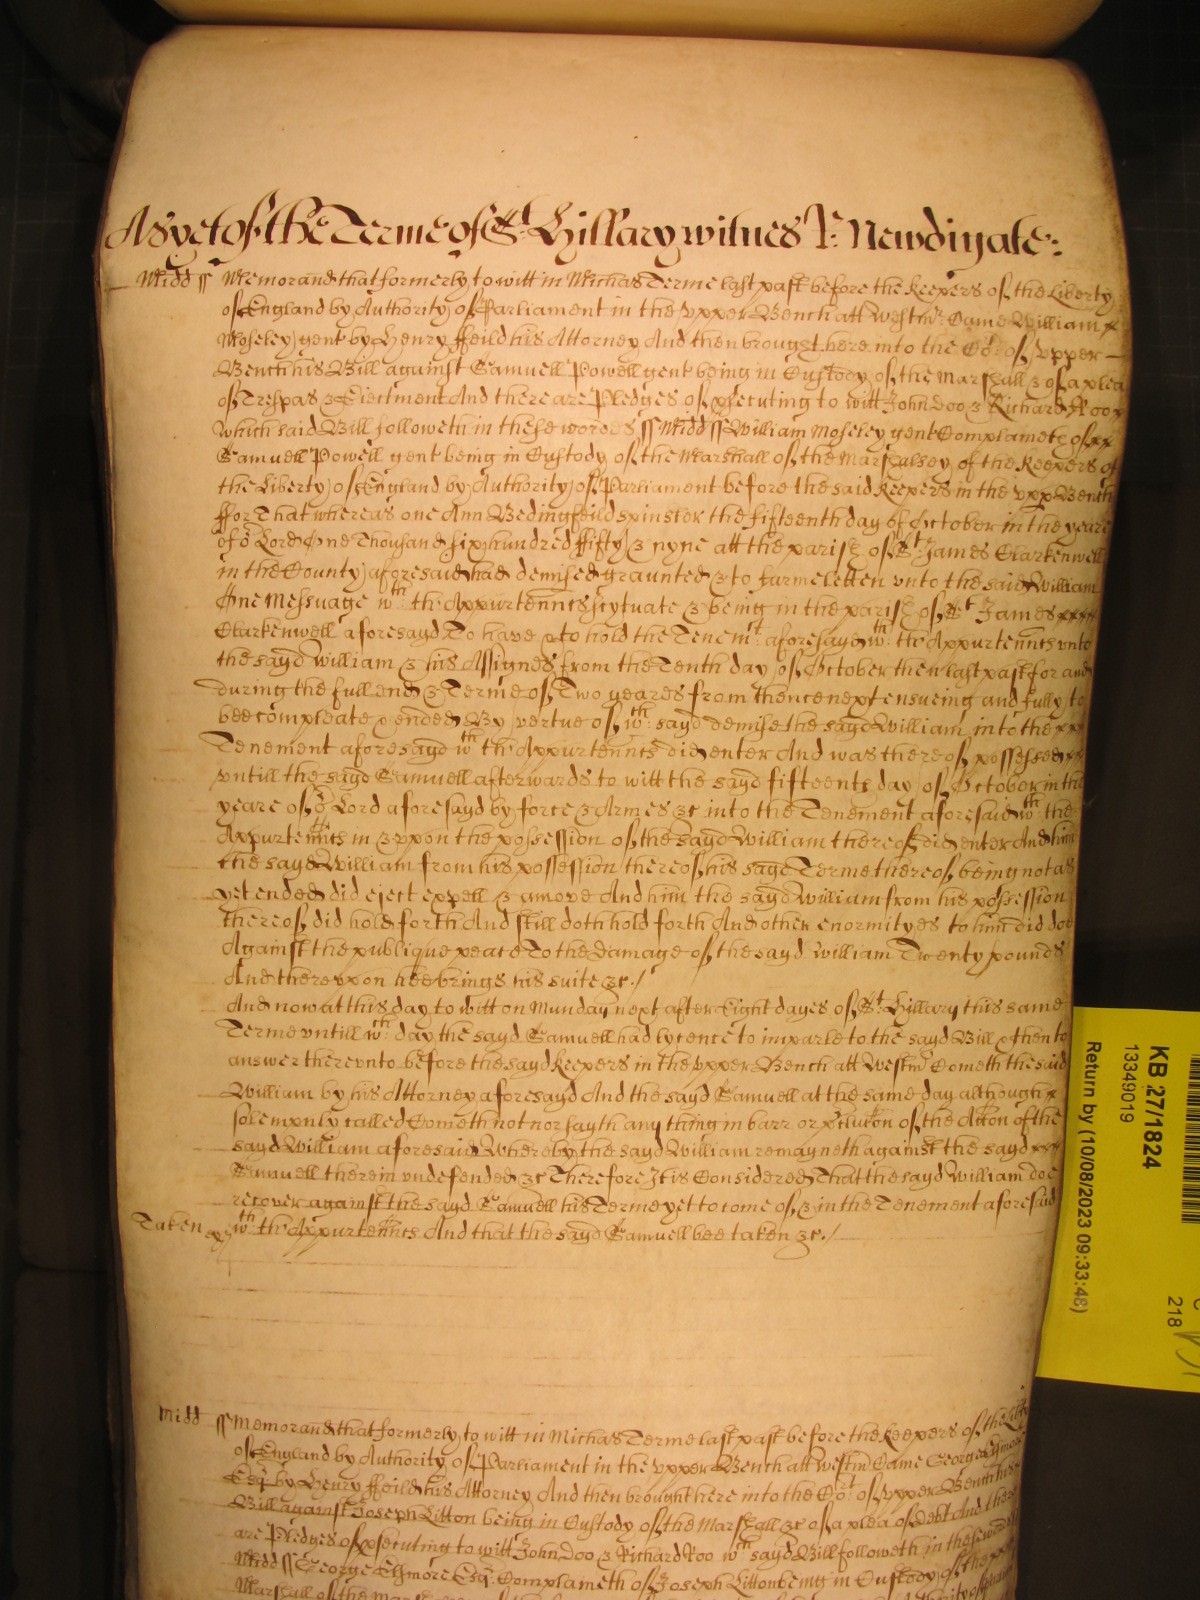 As yet of the Terme of St Hillary witnes R: Newdigate:
Midd ss Memorand that formerly to witt in Michas Terme last past before the Keepers of the Liberty
of England by Authority of Parliament in the Vpper Bench att Westmr Came William
Moseley gent by Henry ffeild his Attorney And then brought here into the Cort of Vpper
Bench his Bill against Samuell Powell gent being in Custody of the Marshall &c of a plea
of Trespas & Eiectment And there are Pledges of psecuting to witt John Doo & Richard Roo
which said Bill followeth in these words ss Midd ss William Moseley gent Complaineth of
Samuell Powell gent being in Custody of the Marshall of the Marshalsey of the Keepers of
the Liberty of England by Authority of Parliament before the said Keepers in the Vpp Bench
ffor That whereas one Ann Bedingfeild spinster the fifteenth day of October in the yeare
of or Lord One Thousand six hundred ffifty & nyne att the parish of St James Clarkenwell
in the County aforesaid had demised graunted & to farme letten vnto the said William
One Messuage wth th'Appurtennts scytuate & being in the parish of St James
Clarkenwell aforesayd To have & to hold the Tenemt aforesayd wth th'Appurtennts vnto
the sayd William & his Assignes from the Tenth day of October then last past for and
during the full end & Terme of Two yeares from thence next ensueing and fully to
bee compleate & ended By vertue of wch sayd demise the sayd William into the
Tenement aforesayd wth th'Appurtennts did enter And was thereof possessed
vntill the sayd Samuell afterwards to witt the sayd fifteenth day of October in the
yeare of or Lord aforesayd by force & Armes &c into the Tenement aforesaid wth the
Appurtennts in & vpon the possession of the sayd William thereof did enter And him
the sayd William from his possession thereof his sayd Terme thereof being not as
yet ended did eject expell & amove And him the sayd William from his possession
thereof did hold forth And still doth hold forth And other enormityes to him did doe
Against the publique peace To the Damage of the sayd William Twenty pounds
And therevpon hee brings his suite &c./
And now at this day to witt on Munday next after Eight dayes of St Hillary this same
Terme vntill wch day the sayd Samuell had lycence to imparle to the sayd Bill & then to
answer therevnto before the sayd Keepers in the Vpper Bench att Westmr Cometh the said
William by his Attorney aforesayd And the sayd Samuell at the same day although
solempnly called Cometh not nor sayth any thing in barr or pclusion of the Accon of the
sayd William aforesaid Whereby the sayd William remayneth against the sayd
Samuell therein vndefended &c Therefore It is Considered That the sayd William doe
recover against the sayd Samuell his Terme yet to come of & in the Tenement aforesaid
Taken wth th'Appurtennts And that the sayd Samuell bee taken &c./
Midd ss Memorand that formerly to witt in Michas Terme last past before the Keepers of the Liberty
of England by Authority of Parliament in the Vpper Bench att Westmr Came George
Esqr by Henry ffeild his Attorney And then brought here into the Cort of Vpper Bench his
Bill against Joseph Litton being in Custody of the Marshall &c of a plea of Debt And there
are Pledges of psecuting to witt John Doo & Richard Roo wch sayd Bill followeth in these words
Midd ss George Esqr Complaineth of Joseph Litton being in Custody of the
Marshall of the
KB 27/1824
13349019
Return by (10/08/2023 09:33:48)
218